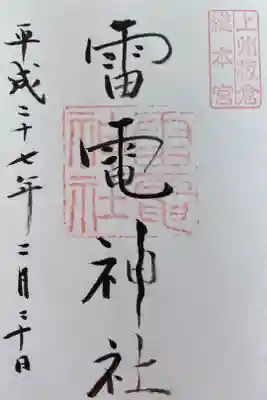 上州板倉
総本宮
雷電神社
雷電
神社
平成二十七年二月二十日